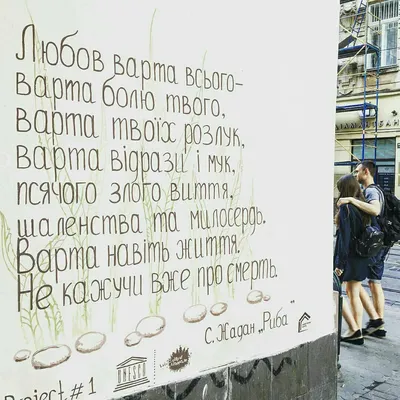 Любов варта всього–
варта болю твого,
варта твоїх розлук,
варта відрази і мук,
псячого злого виття,
шаленства та милосердь.
Варта навіть життя.
Не кажучи вже про смерть.
С. Жадан „Риба"
UNESCO
Project #1